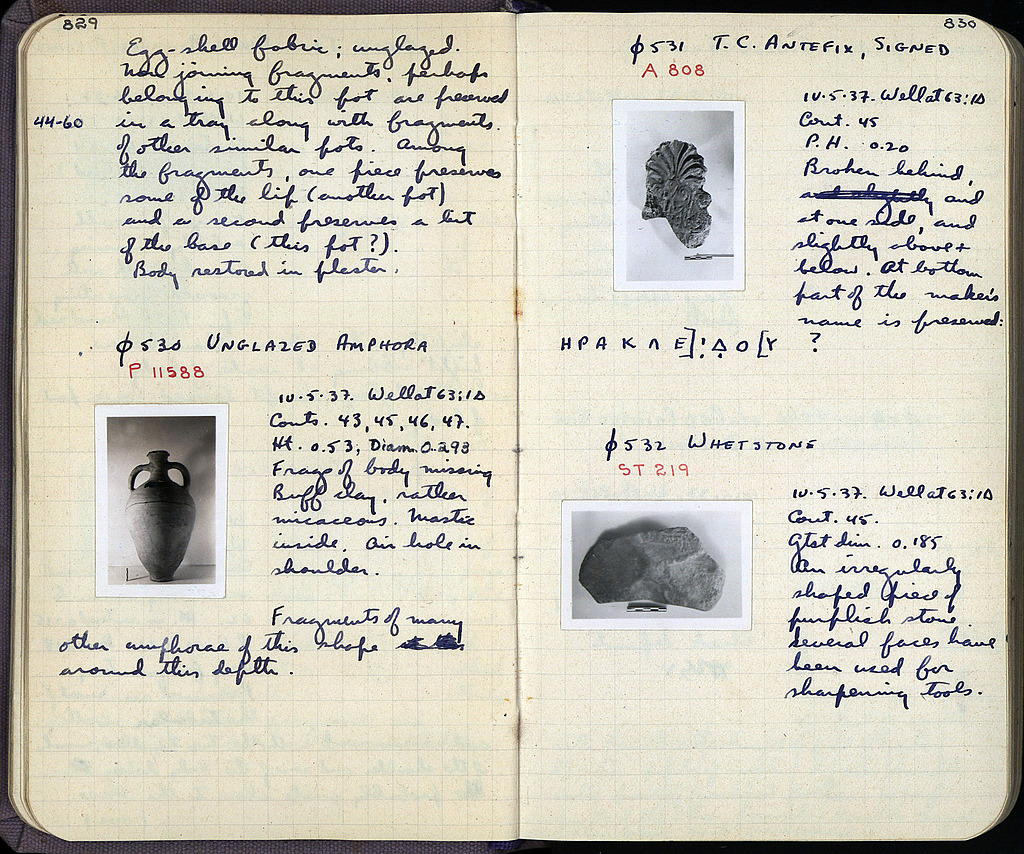 829
Egg-shell fabric; unglazed.
Non joining fragments, perhaps
belonging to this pot are preserved
44-60
in a tray along with fragments
of other similar pots. Among
the fragments, one piece preserves
some of the lip (another pot)
and a second preserves a bit
of the base (this pot?).
Body restored in plaster.
ϕ530 UNGLAZED AMPHORA
P 11588
10.5.37. Well at 63:ΙΔ
Conts. 43, 45, 46, 47.
Ht. 0.53; Diam. 0.293
Frags of body missing
Buff clay, rather
micaceous. Mastic
inside. Air hole in
shoulder.
Fragments of many
other amphorae of this shape
around this depth.
830
ϕ531 T.C. ANTEFIX, SIGNED
A 808
10.5.37. Well at 63:ΙΔ
Cont. 45
P.H. 0.20
Broken behind,
and slightly and
at one side, and
slightly above +
below. At bottom
part of the maker's
name is preserved:
ΗΡΑΚΛΕ]ΙΔΟ[Υ ?
ϕ532 WHETSTONE
ST 219
10.5.37. Well at 63:ΙΔ
Cont. 45.
Gtst dim. 0.185
An irregularly
shaped piece of
purplish stone.
Several faces have
been used for
sharpening tools.